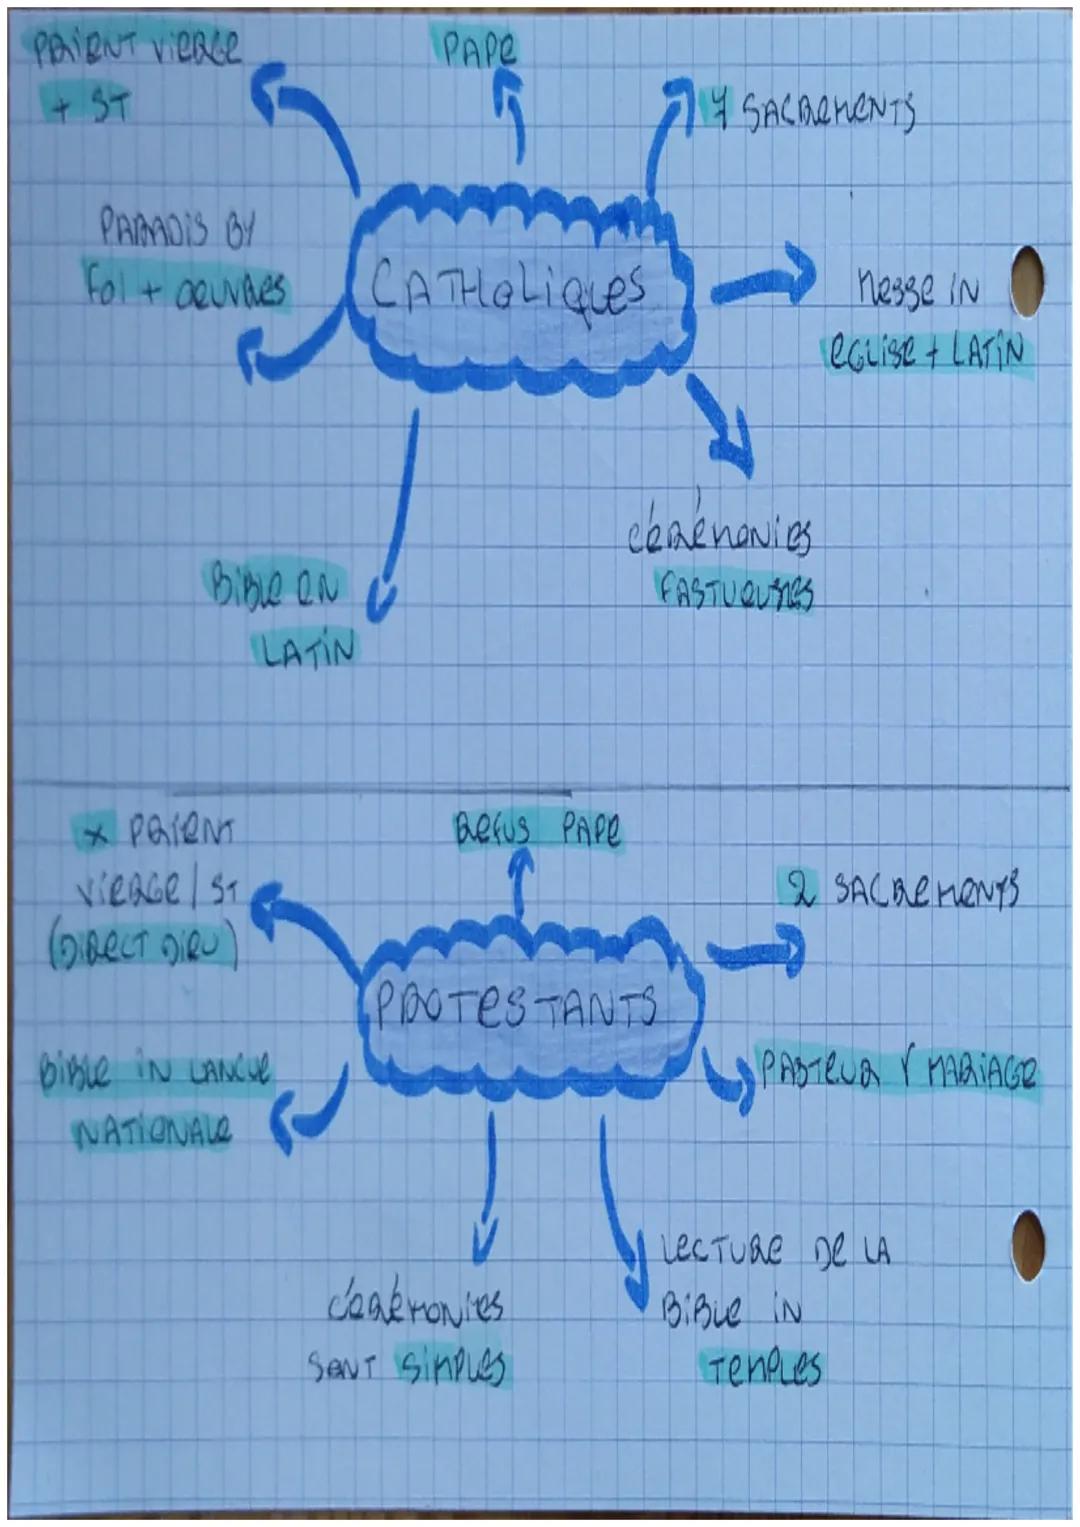 PRIENT VIERGE
+ ST
PAPE
7 SACREMENTS
PARADIS BY
FOI + OEUVRES
CATHOLIQUES
MESSE IN
EGLISE + LATIN
CÉRÉMONIES
FASTUEUSES
BIBLE EN
LATIN
X PRIENT
VIERGE / ST
(DIRECT DIEU)
REFUS PAPE
2 SACREMENTS
PROTESTANTS
BIBLE IN LANGUE
NATIONALE
PASTEUR V MARIAGE
CÉRÉMONIES
SONT SIMPLES
LECTURE DE LA
BIBLE IN
TEMPLES